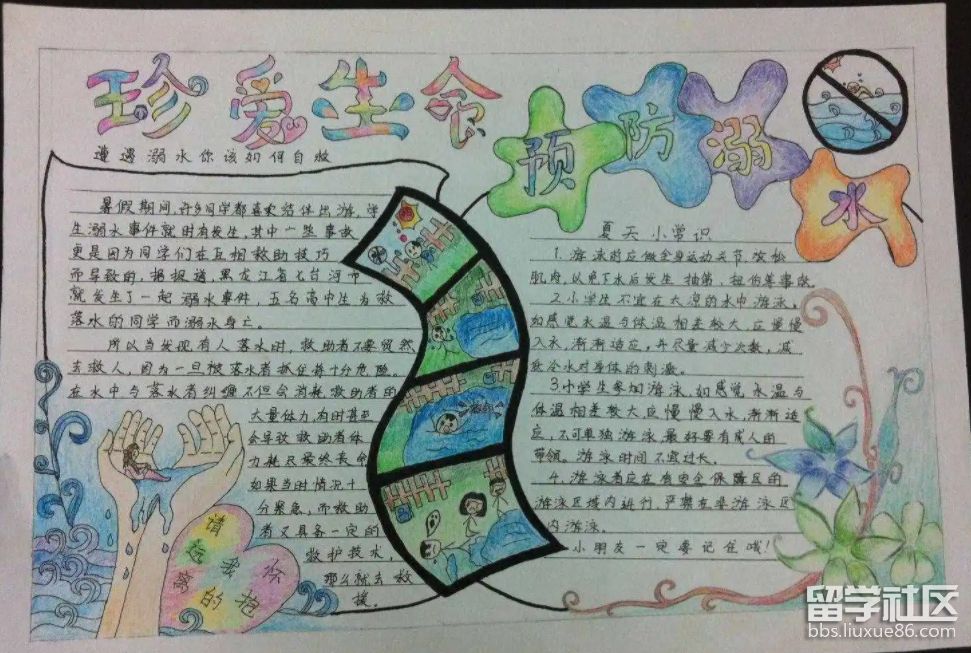 珍爱生命
预防溺水
遭遇溺水你该如何自救
暑假期间,许多同学都喜欢结伴出游,学
生溺水事件就时有发生,其中一些事故
更是因为同学们在互相救助技巧
而导致的,据报道,黑龙江省七台河市
就发生了一起溺水事件,五名高中生为救
落水的同学而溺水身亡。
所以当发现有人落水时,救助者不要贸然
去救人,因为一旦被落水者抓住将十分危险。
在水中与落水者纠缠不但会消耗救助者的
大量体力,有时甚至
会导致救助者体
力耗尽最终丧命
如果当时情况十
分紧急,而救助
者又具备一定的
救护技水,
那么就去救
援。
请远离我的怀抱
夏天小常识
1.游泳时应做全身运动关节,放松
肌肉,以免下水后发生抽筋、扭伤等事故。
2.小学生不宜在太凉的水中游泳,
如感觉水温与体温相差较大,应慢慢
入水,渐渐适应,并尽量减少次数,减
少冷水对身体的刺激。
3.中学生参加游泳,如感觉水温与
体温相差较大应慢慢入水,渐渐适
应,不可单独游泳最好要有成人的
带领。游泳时间不宜过长。
4.游泳者应在有安全保障区的
游泳区域内进行,严禁在非游泳区
内游泳。
小朋友一定要记住哦!
留学社区
bbs.liuxue86.com